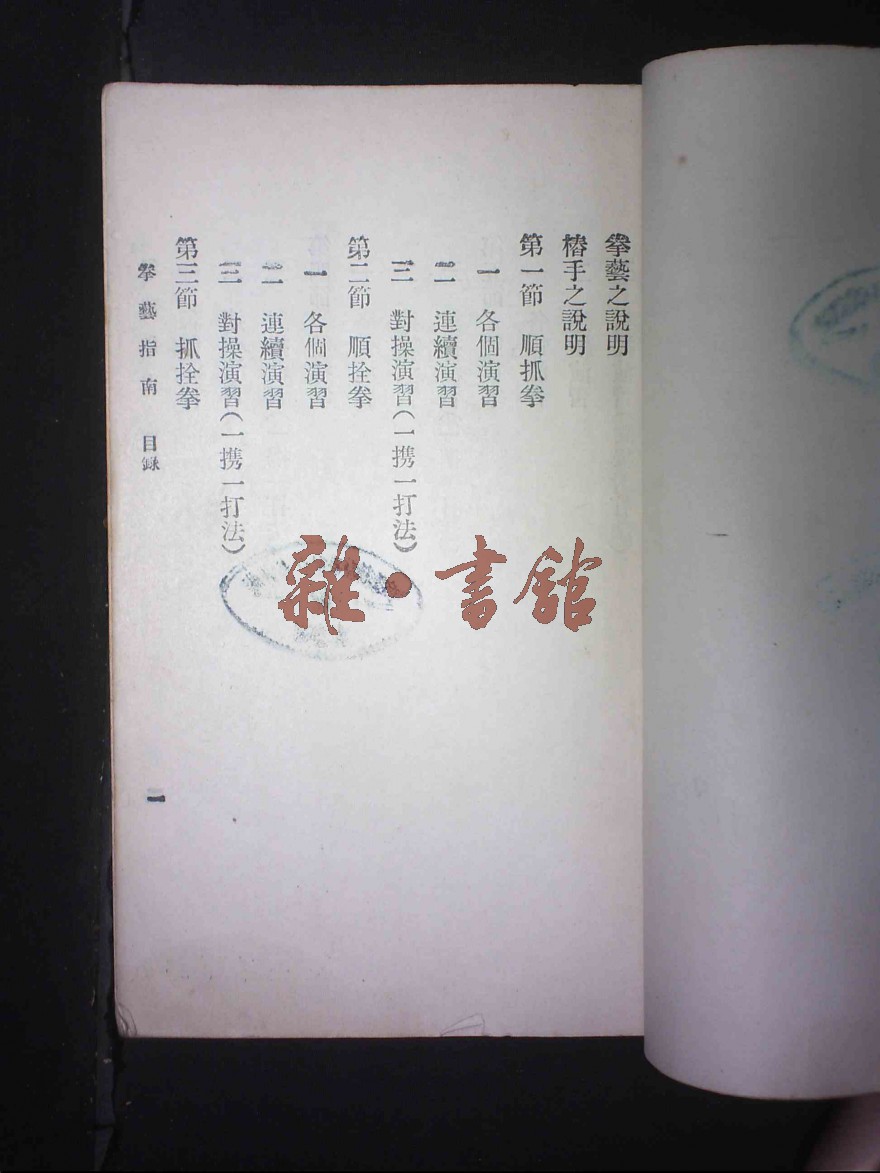 拳藝之說明
樁手之說明
第一節　順抓拳
一　各個演習
二　連續演習
三　對操演習(一携一打法)
第二節　順拴拳
一　各個演習
二　連續演習
三　對操演習(一携一打法)
第三節　抓拴拳
拳藝指南　目錄
一
雜·書館